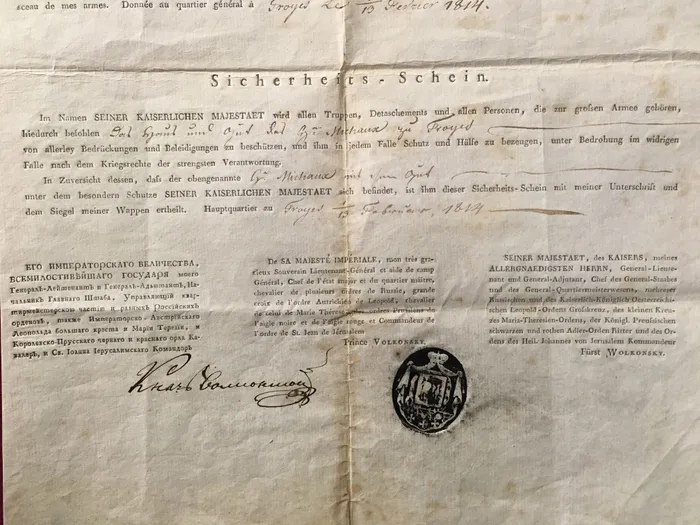 sceau de mes armes. Donnée au quartier général à Troyes Le 1/13 Fevrier 1814.
Sicherheits-Schein.
Im Namen SEINER KAISERLICHEN MAJESTAET wird allen Truppen, Detaschements und allen Personen, die zur grossen Armee gehören,
hiedurch befohlen Das Haus und Gut des H: Michaux zu Troyes
von allerley Bedrückungen und Beleidigungen zu beschützen, und ihm in jedem Falle Schutz und Hülfe zu bezeugen, unter Bedrohung im widrigen
Falle nach dem Kriegsrechte der strengsten Verantwortung.
In Zuversicht dessen, dass der obengenannte H: Michaux mit dem Gut
unter dem besondern Schutze SEINER KAISERLICHEN MAJESTAET sich befindet, ist ihm dieser Sicherheits-Schein mit meiner Unterschrift und
dem Siegel meiner Wappen ertheilt. Hauptquartier zu Troyes 1/13 Februar 1814
ЕГО ИМПЕРАТОРСКАГО ВЕЛИЧЕСТВА,
ВСЕМИЛОСТИВѢЙШАГО ГОСУДАРЯ моего
Генералъ-Лейтенантъ и Генералъ-Адъютантъ, На-
чальникъ Главнаго Штаба, Управляющій квар-
тирмейстерскою частію и разныхъ Россійскихъ
орденовъ, также Императорско-Австрійскаго
Леопольда большаго креста и Маріи Терезіи, и
Королевско-Прусскихъ чернаго и краснаго орла Ка-
валеръ, и Св. Іоанна Іерусалимскаго Командоръ
Князь Волконской
De SA MAJESTÉ IMPÉRIALE, mon très gra-
cieux Souverain Lieutenant-Général et aide de camp
Général, Chef de l'état major et du quartier maitre,
chevalier de plusieurs ordres de Russie, grande
croix de l'ordre Autrichien de Leopold, chevalier
de celui de Marie Thérèse, des ordres Prussiens de
l'aigle noire et de l'aigle rouge et Commandeur de
l'ordre de St. Jean de Jérusalem
Prince Volkonsky.
SEINER MAJESTAET, des KAISERS, meines
ALLERGNAEDIGSTEN HERRN, General-Lieute-
nant und General-Adjutant, Chef des General-Staabes
und des General-Quartiermeisterwesens, mehrerer
Russischen und des Kaiserlich-Königlich Oesterreichi-
schen Leopold-Ordens Groskreuz, des kleinen Kreuz-
zes Maria-Theresien-Ordens, der Königl. Preussischen
schwarzen und rothen Adler-Orden Ritter und des Or-
dens des Heil. Johannes von Jerusalem Kommandeur
Fürst Wolkonsky.